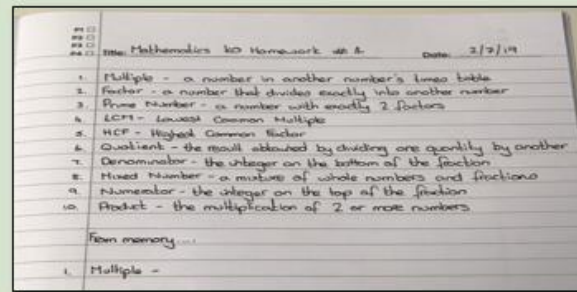 P1
P2
P3
P4 Title: Mathematics KO Homework # 1 Date: 2/7/19
1. Multiple - a number in another number's times table
2. Factor - a number that divides exactly into another number
3. Prime Number - a number with exactly 2 factors
4. LCM - Lowest Common Multiple
5. HCF - Highest Common Factor
6. Quotient - the result obtained by dividing one quantity by another
7. Denominator - the integer on the bottom of the fraction
8. Mixed Number - a mixture of whole numbers and fractions
9. Numerator - the integer on the top of the fraction
10. Product - the multiplication of 2 or more numbers
From memory....
1. Multiple -